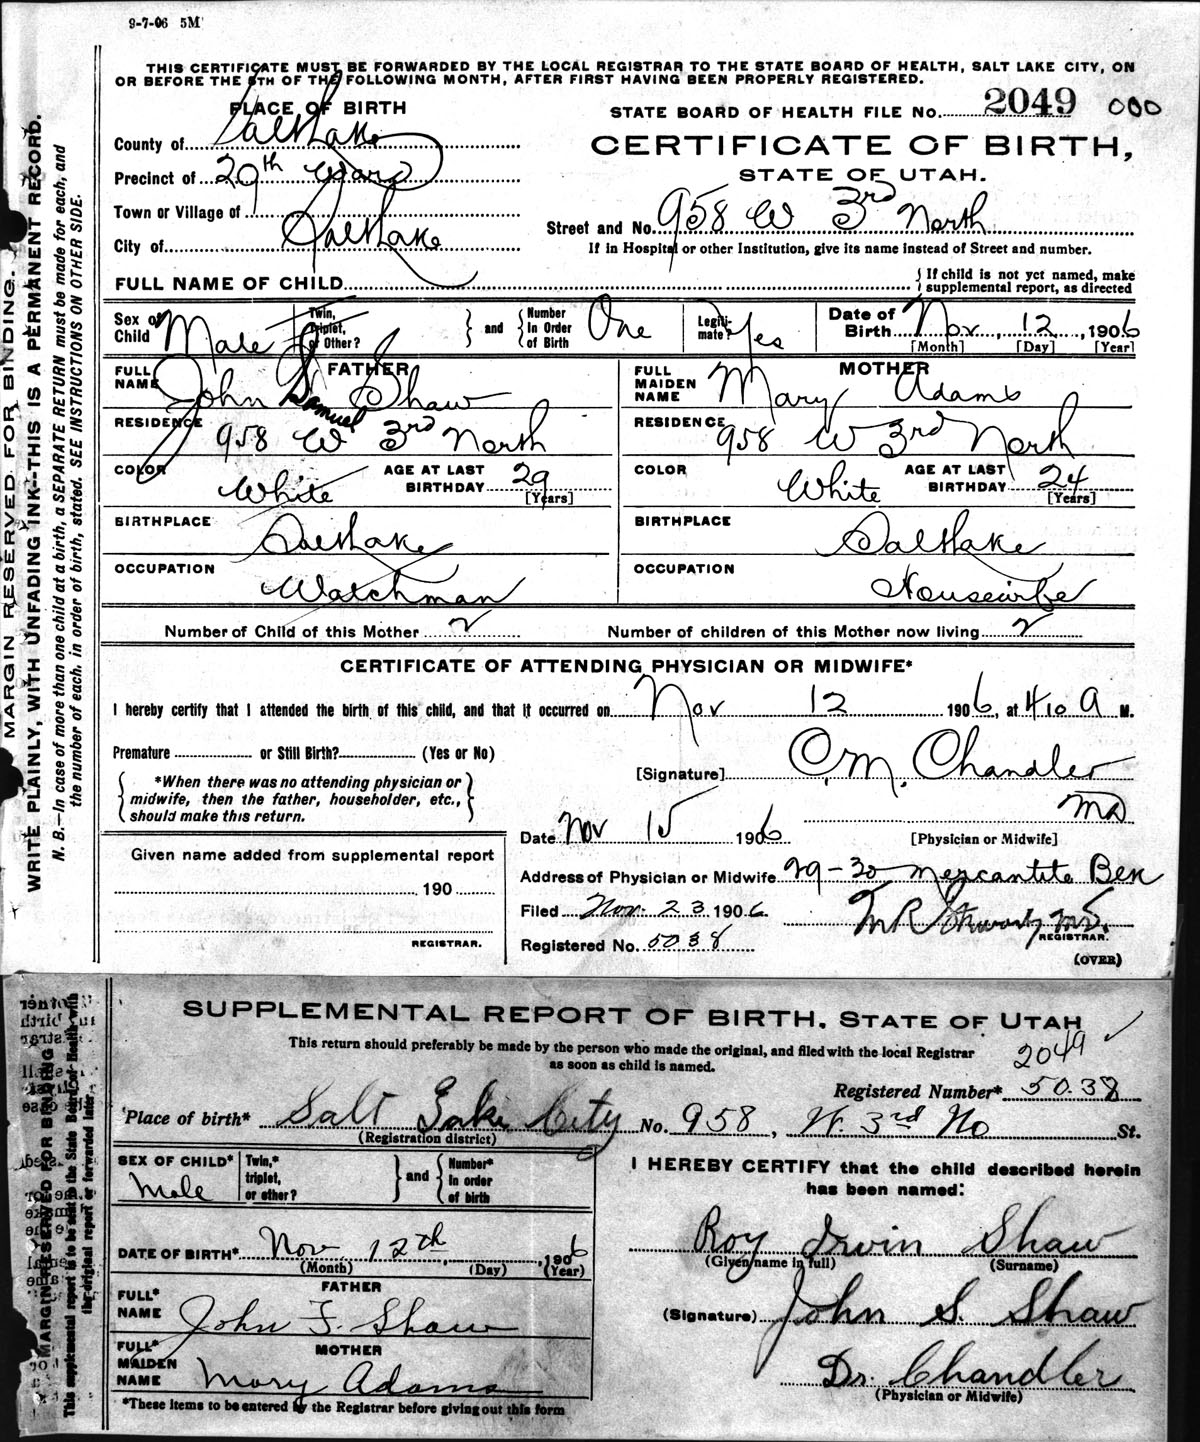 9-7-06 5M
THIS CERTIFICATE MUST BE FORWARDED BY THE LOCAL REGISTRAR TO THE STATE BOARD OF HEALTH, SALT LAKE CITY, ON
OR BEFORE THE 5TH OF THE FOLLOWING MONTH, AFTER FIRST HAVING BEEN PROPERLY REGISTERED.
PLACE OF BIRTH
STATE BOARD OF HEALTH FILE No. 2049 000
County of Salt Lake
CERTIFICATE OF BIRTH,
Precinct of 29th Ward
STATE OF UTAH.
Town or Village of
Street and No. 958 W 3rd North
City of Salt Lake
If in Hospital or other Institution, give its name instead of Street and number.
FULL NAME OF CHILD
{ If child is not yet named, make
supplemental report, as directed
Sex of Child Male
Twin, Triplet, or Other? } and { Number In Order of Birth One
Legiti-mate? Yes
Date of Birth Nov. 12, 1906
[Month] [Day] [Year]
FATHER
FULL NAME John Samuel Shaw
MOTHER
FULL MAIDEN NAME Mary Adams
RESIDENCE 958 W 3rd North
RESIDENCE 958 W 3rd North
COLOR White AGE AT LAST BIRTHDAY 29 [Years]
COLOR White AGE AT LAST BIRTHDAY 24 [Years]
BIRTHPLACE Salt Lake
BIRTHPLACE Salt Lake
OCCUPATION Watchman
OCCUPATION Housewife
Number of Child of this Mother 2
Number of children of this Mother now living 2
CERTIFICATE OF ATTENDING PHYSICIAN OR MIDWIFE*
I hereby certify that I attended the birth of this child, and that it occurred on Nov 12 1906, at 4 10 A M.
Premature or Still Birth? (Yes or No)
{ *When there was no attending physician or
midwife, then the father, householder, etc.,
should make this return. }
[Signature] C. M. Chandler
MD
Date Nov 15 1906 [Physician or Midwife]
Given name added from supplemental report
190
REGISTRAR.
Address of Physician or Midwife 29-30 Mercantile
Filed Nov. 23 1906
M.D.
REGISTRAR.
Registered No. 5038
(OVER)
MARGIN RESERVED FOR BINDING.
WRITE PLAINLY, WITH UNFADING INK--THIS IS A PERMANENT RECORD.
N. B.—In case of more than one child at a birth, a SEPARATE RETURN must be made for each, and
the number of each, in order of birth, stated. SEE INSTRUCTIONS ON OTHER SIDE.
SUPPLEMENTAL REPORT OF BIRTH, STATE OF UTAH
This return should preferably be made by the person who made the original, and filed with the local Registrar
as soon as child is named.
2049 ✓
Registered Number* 5038
Place of birth* Salt Lake City No. 958, W. 3rd No St.
(Registration district)
SEX OF CHILD* Male
Twin,* triplet, or other? } and { Number* In order of birth
I HEREBY CERTIFY that the child described herein
has been named:
DATE OF BIRTH* Nov. 12th, 1906
(Month) (Day) (Year)
Roy Irvin Shaw
(Given name in full) (Surname)
FATHER
FULL* NAME John F. Shaw
(Signature) John S. Shaw
MOTHER
FULL* MAIDEN NAME Mary Adams
Dr. Chandler
(Physician or Midwife)
*These items to be entered by the Registrar before giving out this form
MARGIN RESERVED FOR BINDING
This supplemental report is to be sent to the State Board of Health with
the original report or forwarded later